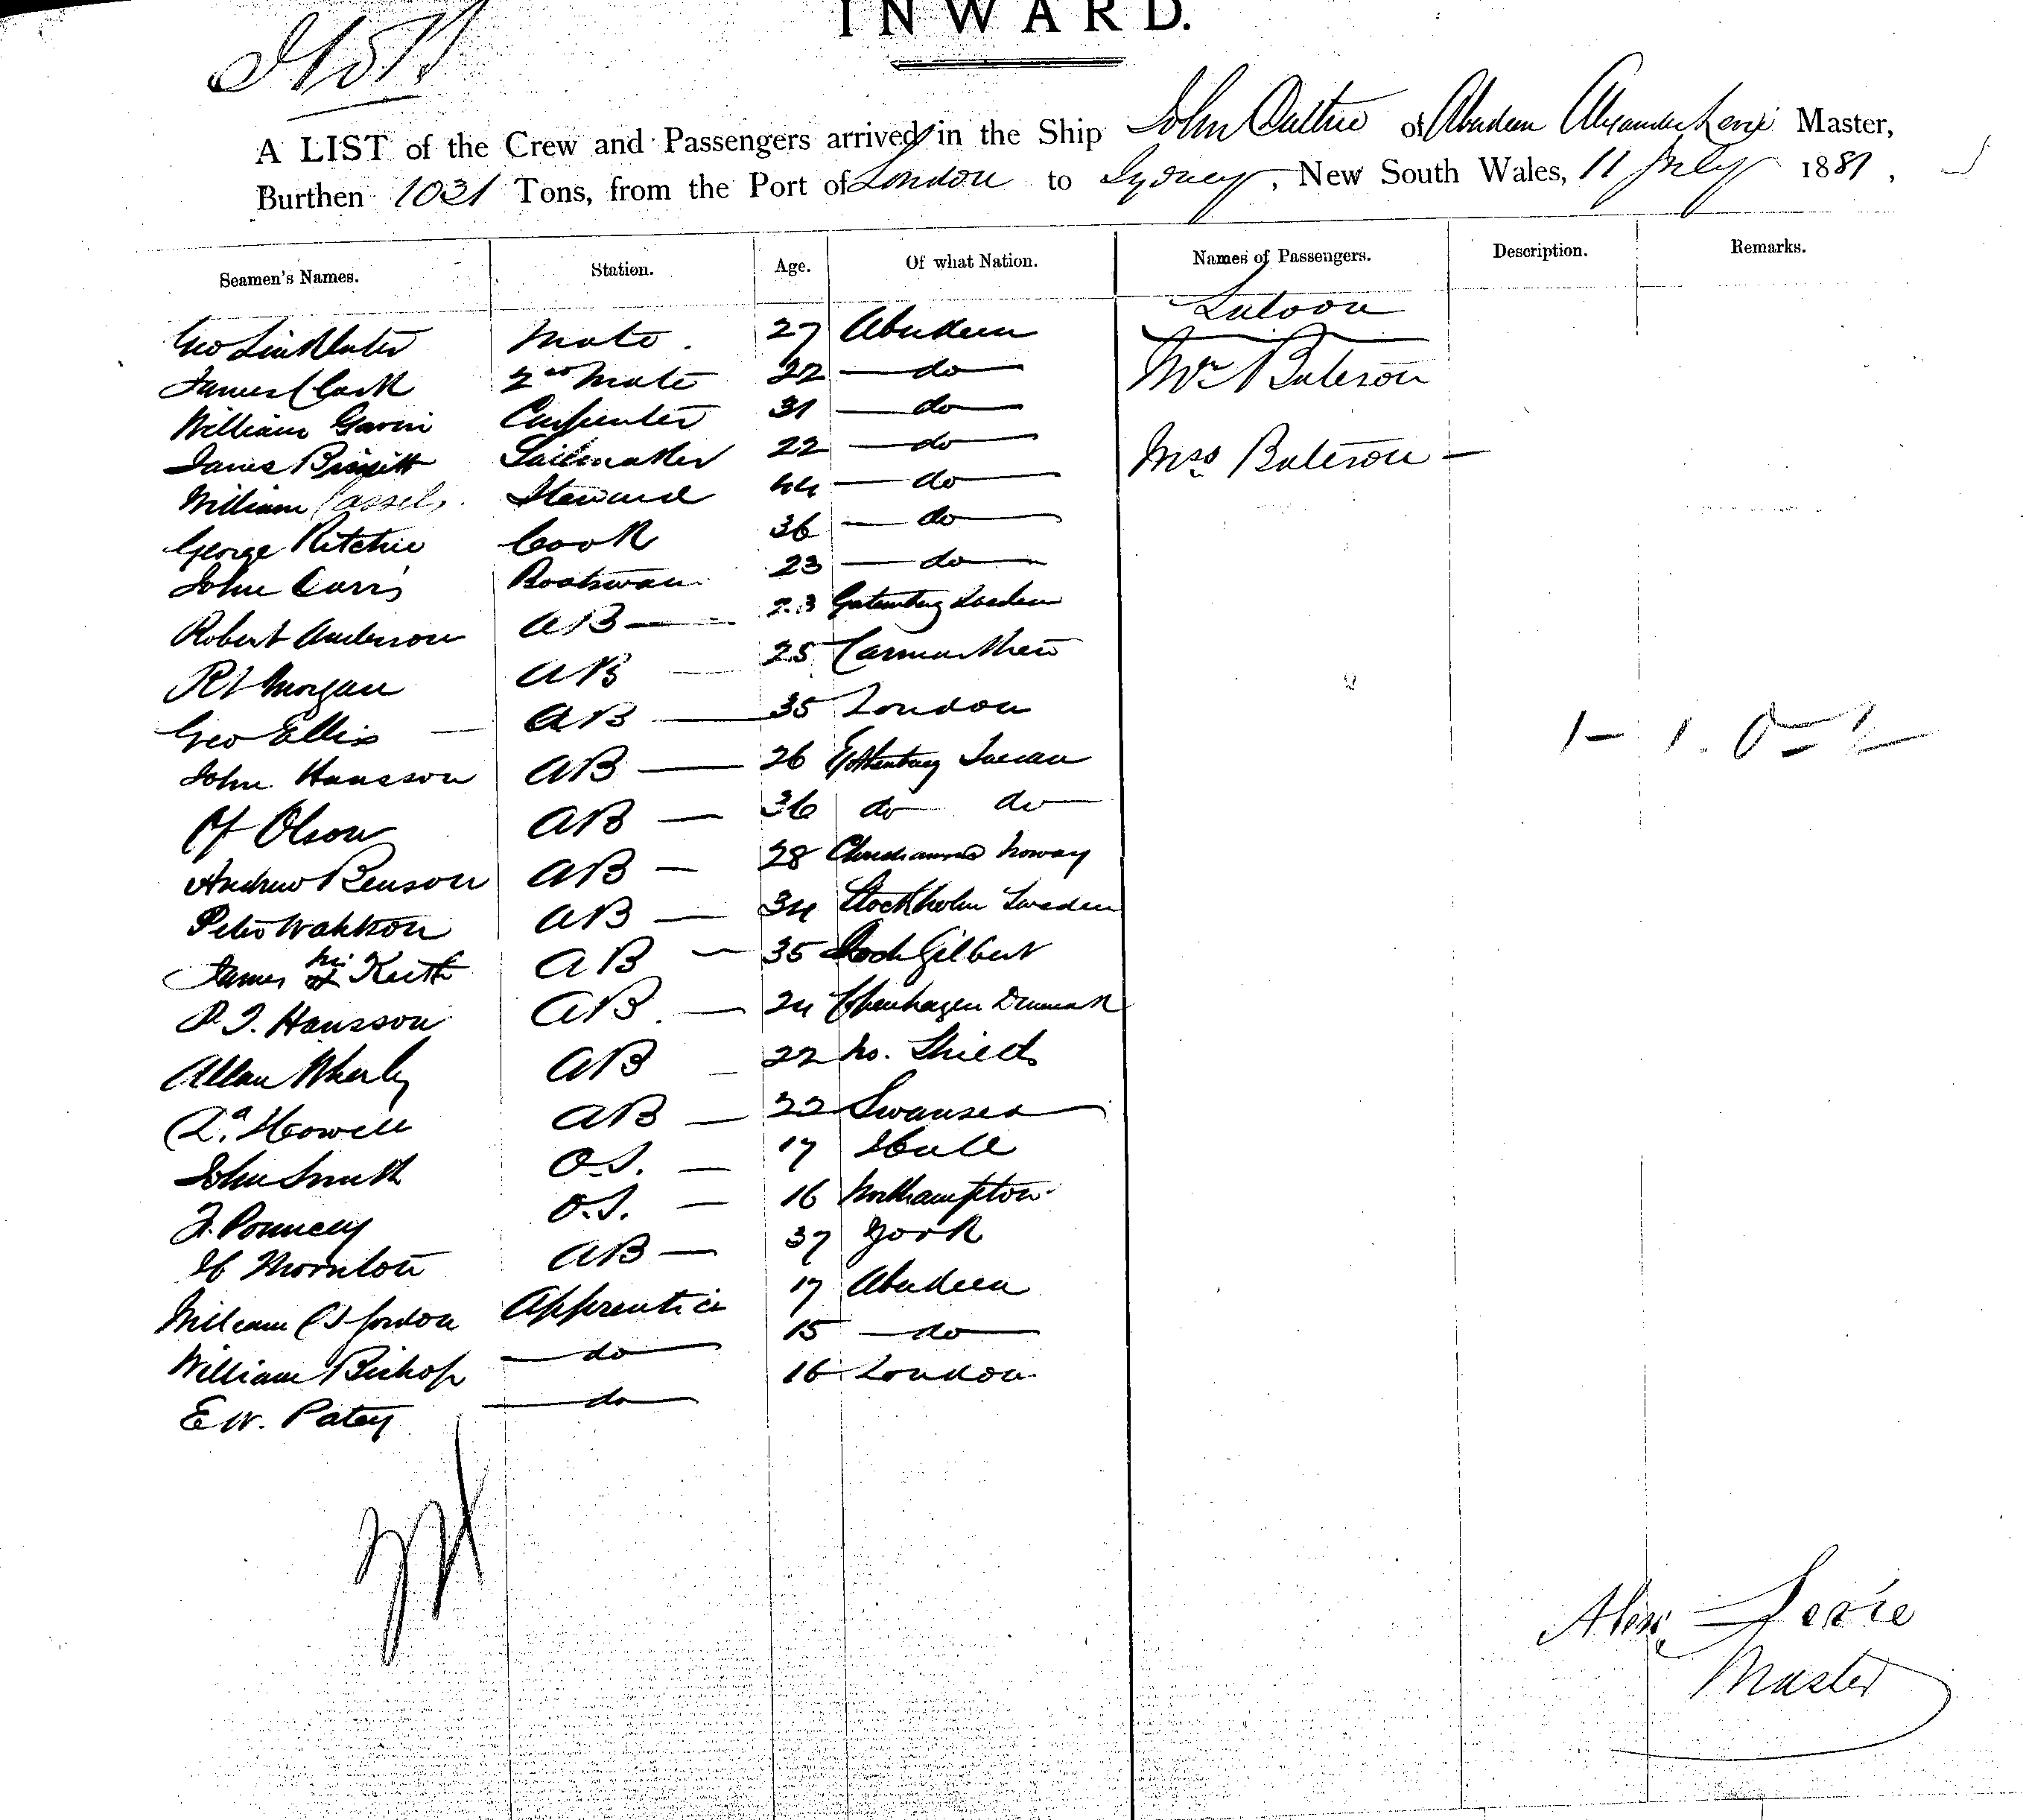 INWARD.
A LIST of the Crew and Passengers arrived in the Ship John Duthie of Aberdeen Alexander Levie Master,
Burthen 1031 Tons, from the Port of London to Sydney, New South Wales, 11 July 1881,
Seamen's Names. Station. Age. Of what Nation. Names of Passengers. Description. Remarks.
Saloon
Geo Linklater Mate. 27 Aberdeen
James Clark 2nd Mate 22 do Mr Bateson
William Gavin Carpenter 31 do
James Sailmaker 22 do Mrs Bateson
William Cassels Steward 44 do
George Ritchie Cook 36 do
John Boatswain 23 do
Robert Anderson AB 23 Sweden
Morgan AB 25 Carmarthen
Geo Ellis AB 35 London
John Hansson AB 26 Gothenburg
Olson AB 36 do do
Andrew Benson AB 28 Norway
Peter AB 34 Stockholm Sweden
James Keith AB 35 Gilbert
P. J. Hansson AB. 24 Copenhagen Denmark
Allan AB 22 No. Shields
Howell AB 22 Swansea
John Smith O.S. 17 Hull
O.S. 16 Northampton
H Thornton AB 37 York
William Gordon Apprentice 17 Aberdeen
William Bishop do 15 do
E W. Patey do 16 London
Alex Levie
Master